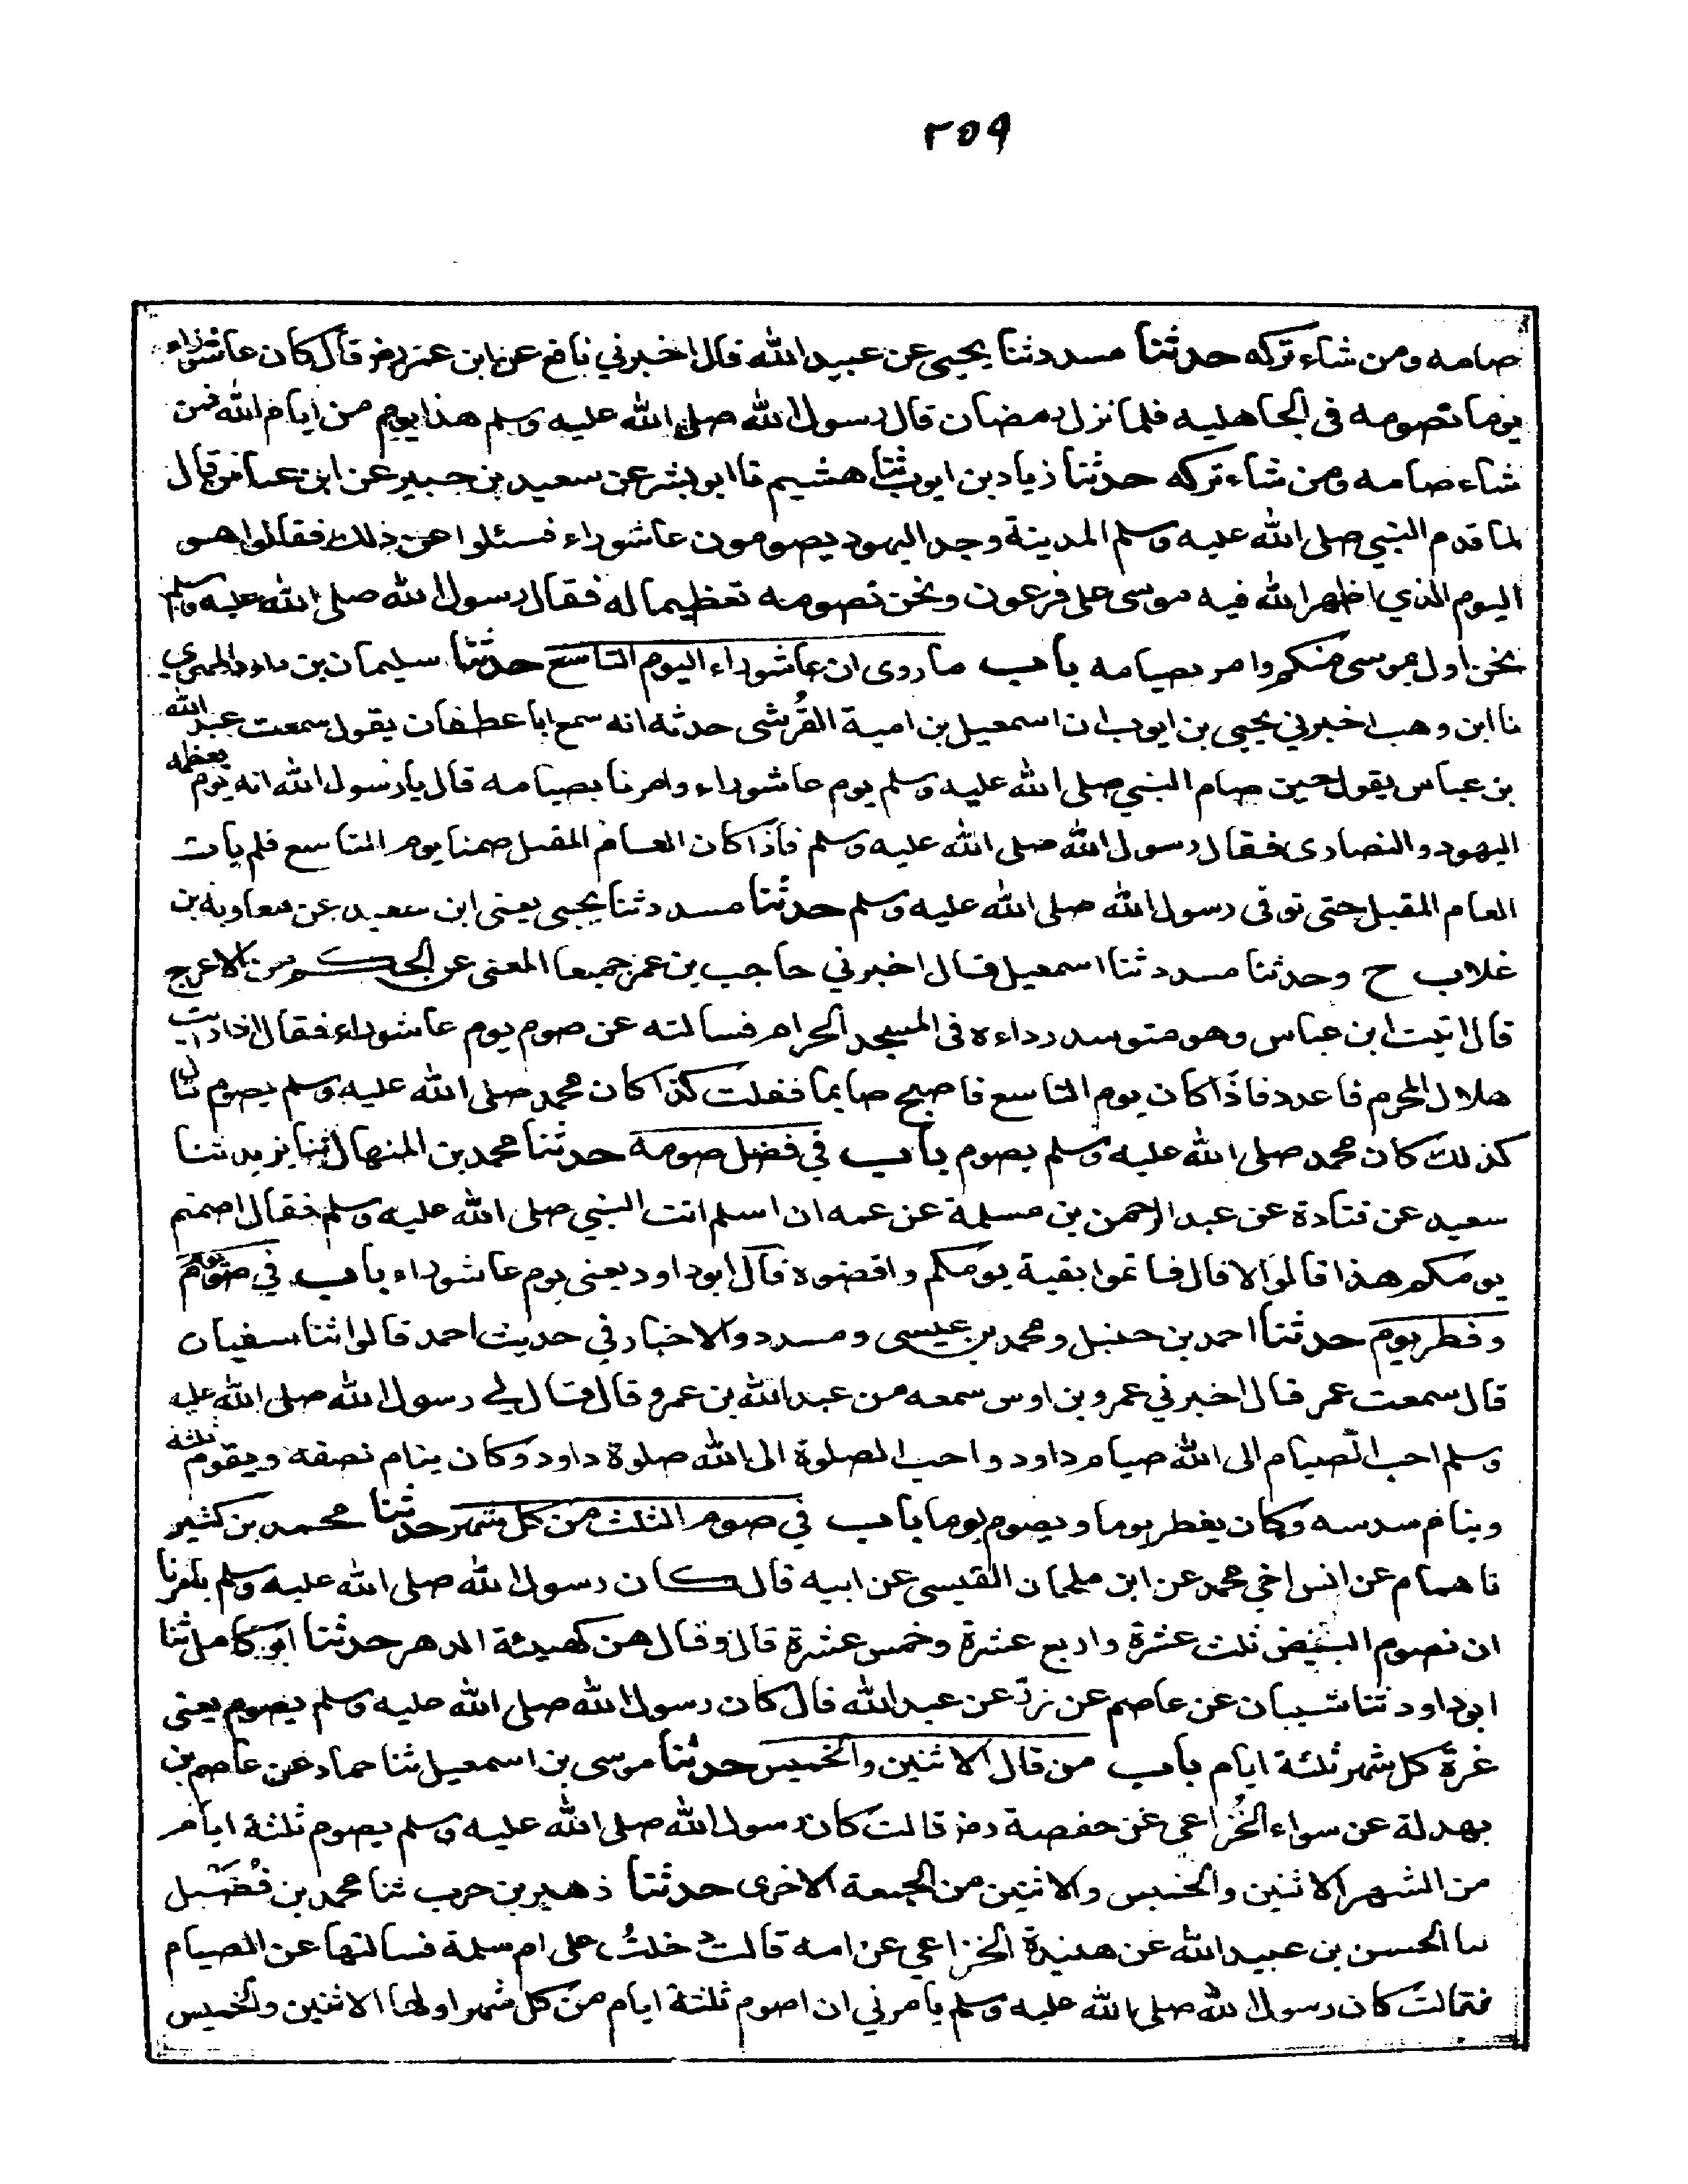 ٢٥٩
صامه ومن شاء تركه حدثنا مسدد ثنا يحيى عن عبيد الله قال اخبرني نافع عن ابن عمر رض قال كان عاشوراء
يوما نصومه فى الجاهليه فلما نزل رمضان قال رسول الله صلى الله عليه وسلم هذا يوم من ايام الله فمن
شاء صامه ومن شاء تركه حدثنا زياد بن ايوب ثنا هشيم نا ابو بشر عن سعيد بن جبير عن ابن عباس قال
لما قدم النبي صلى الله عليه وسلم المدينة وجد اليهود يصومون عاشوراء فسئلوا عن ذلك فقالوا هو
اليوم الذي اظهر الله فيه موسى على فرعون ونحن نصومه تعظيما له فقال رسول الله صلى الله عليه وسلم
نحن اولى بموسى منكم وامر بصيامه باب ما روى ان عاشوراء اليوم التاسع حدثنا سليمان بن داود المهري
نا ابن وهب اخبرني يحيى بن ايوب ان اسمعيل بن امية القرشى حدثه انه سمع ابا غطفان يقول سمعت عبد الله
بن عباس يقول حين صام النبي صلى الله عليه وسلم يوم عاشوراء وامرنا بصيامه قال يا رسول الله انه يوم يعظمه
اليهود والنصارى فقال رسول الله صلى الله عليه وسلم فاذا كان العام المقبل صمنا يوم التاسع فلم يات
العام المقبل حتى توفى رسول الله صلى الله عليه وسلم حدثنا مسدد ثنا يحيى يعنى ابن سعيد عن معاوية بن
غلاب ح وحدثنا مسدد ثنا اسمعيل قال اخبرني حاجب بن عمر جميعا المعنى عن الحكم بن الاعرج
قال اتيت ابن عباس وهو متوسد رداءه فى المسجد الحرام فسالته عن صوم يوم عاشوراء فقال اذا رايت
هلال المحرم فاعدد فاذا كان يوم التاسع فاصبح صايما فقلت كذا كان محمد صلى الله عليه وسلم يصوم قال
كذلك كان محمد صلى الله عليه وسلم يصوم باب في فضل صومه حدثنا محمد بن المنهال ثنا يزيد ثنا
سعيد عن قتادة عن عبد الرحمن بن مسلمة عن عمه ان اسلم اتت النبي صلى الله عليه وسلم فقال اصمتم
يومكم هذا قالوا لا قال فاتموا بقية يومكم واقضوه قال ابو داود يعنى يوم عاشوراء باب في صوم يوم
وفطر يوم حدثنا احمد بن حنبل ومحمد بن عيسى ومسدد والاخبار في حديث احمد قالوا ثنا سفيان
قال سمعت عمر قال اخبرني عمرو بن اوس سمعه من عبد الله بن عمرو قال قال لي رسول الله صلى الله عليه
وسلم احب الصيام الى الله صيام داود واحب الصلوة الى الله صلوة داود وكان ينام نصفه ويقوم ثلثه
وينام سدسه وكان يفطر يوما ويصوم يوما باب في صوم الثلث من كل شهر حدثنا محمد بن كثير
نا همام عن انس اخي محمد عن ابن ملحان القيسى عن ابيه قال كان رسول الله صلى الله عليه وسلم يامرنا
ان نصوم البيض ثلث عشرة واربع عشرة وخمس عشرة قال وقال هن كهيئة الدهر حدثنا ابو كامل ثنا
ابو داود ثنا شيبان عن عاصم عن زر عن عبد الله قال كان رسول الله صلى الله عليه وسلم يصوم يعنى
غرة كل شهر ثلثة ايام باب من قال الاثنين والخميس حدثنا موسى بن اسمعيل ثنا حماد عن عاصم بن
بهدلة عن سواء الخزاعي عن حفصة رض قالت كان رسول الله صلى الله عليه وسلم يصوم ثلثة ايام
من الشهر الاثنين والخميس والاثنين من الجمعة الاخرى حدثنا زهير بن حرب ثنا محمد بن فضيل
نا الحسن بن عبيد الله عن هنيدة الخزاعي عن امه قالت دخلت على ام سلمة فسالتها عن الصيام
فقالت كان رسول الله صلى الله عليه وسلم يامرني ان اصوم ثلثة ايام من كل شهر اولها الاثنين والخميس